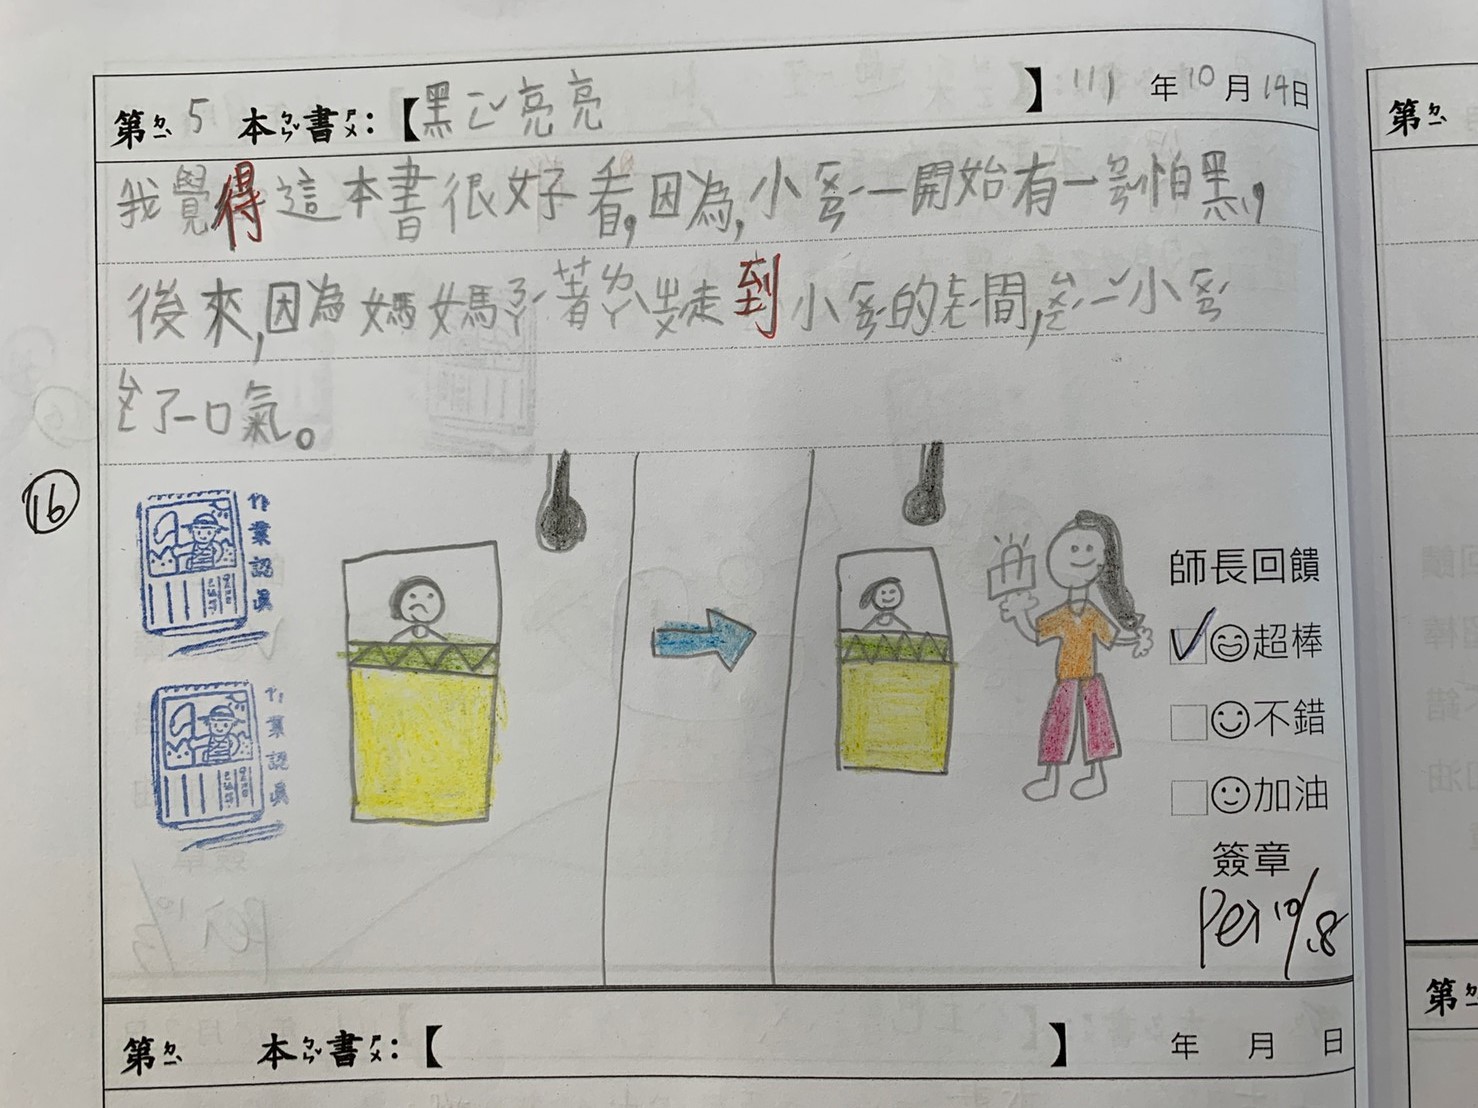 第ㄉㄧˋ 5 本ㄅㄣˇ書ㄕㄨ：【黑ㄓˇ亮亮】 111 年 10 月 14 日
我覺得這本書很好看,因為,小ㄉㄢˋ一開始有一ㄉㄧㄢˇ怕黑,
後來,因為媽媽ㄋㄚˊ著ㄌㄚˋ走到小ㄉㄢˋ的房間,小ㄉㄢˋ
了一口氣。
16
作業認真
作業認真
師長回饋
✓超棒
不錯
加油
簽章
Pei 10/18
第ㄉㄧˋ 本ㄅㄣˇ書ㄕㄨ：【 】 年 月 日
第ㄉㄧˋ
第ㄉㄧˋ